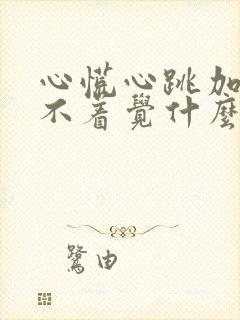 心慌心跳加
不着覺什麼
鷺由